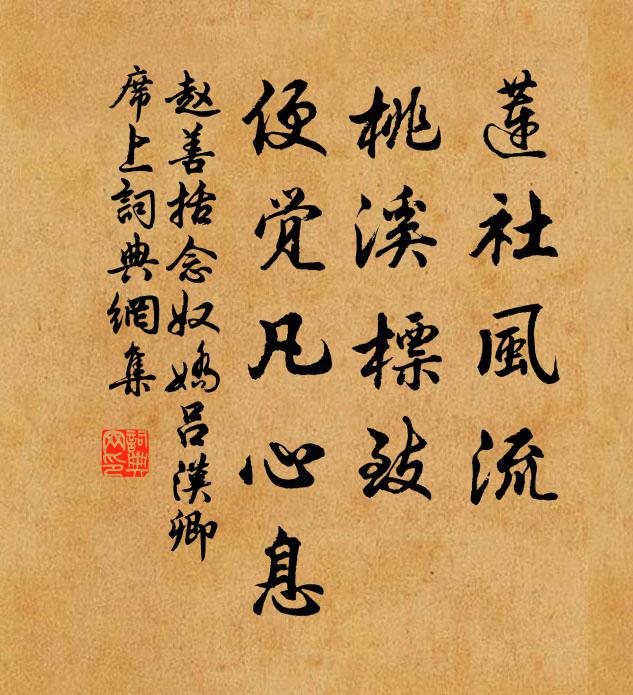 蓮社風流
桃溪標致
便觉凡心息
赵善括念奴嬌吕漢卿
席上詞典網集
詞典
网印